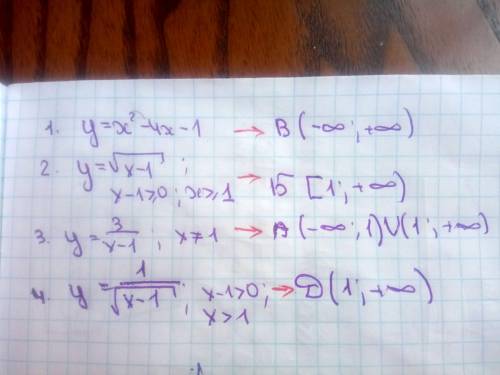 1. y=x²-4x-1 → В (-∞; +∞)
2. y=√x-1 ;
x-1≥0; x≥1 → Б [1; +∞)
3. y=3/(x-1); x≠1 → А (-∞; 1)∪(1; +∞)
4. y=1/√x-1; x-1>0; → Д (1; +∞)
x>1